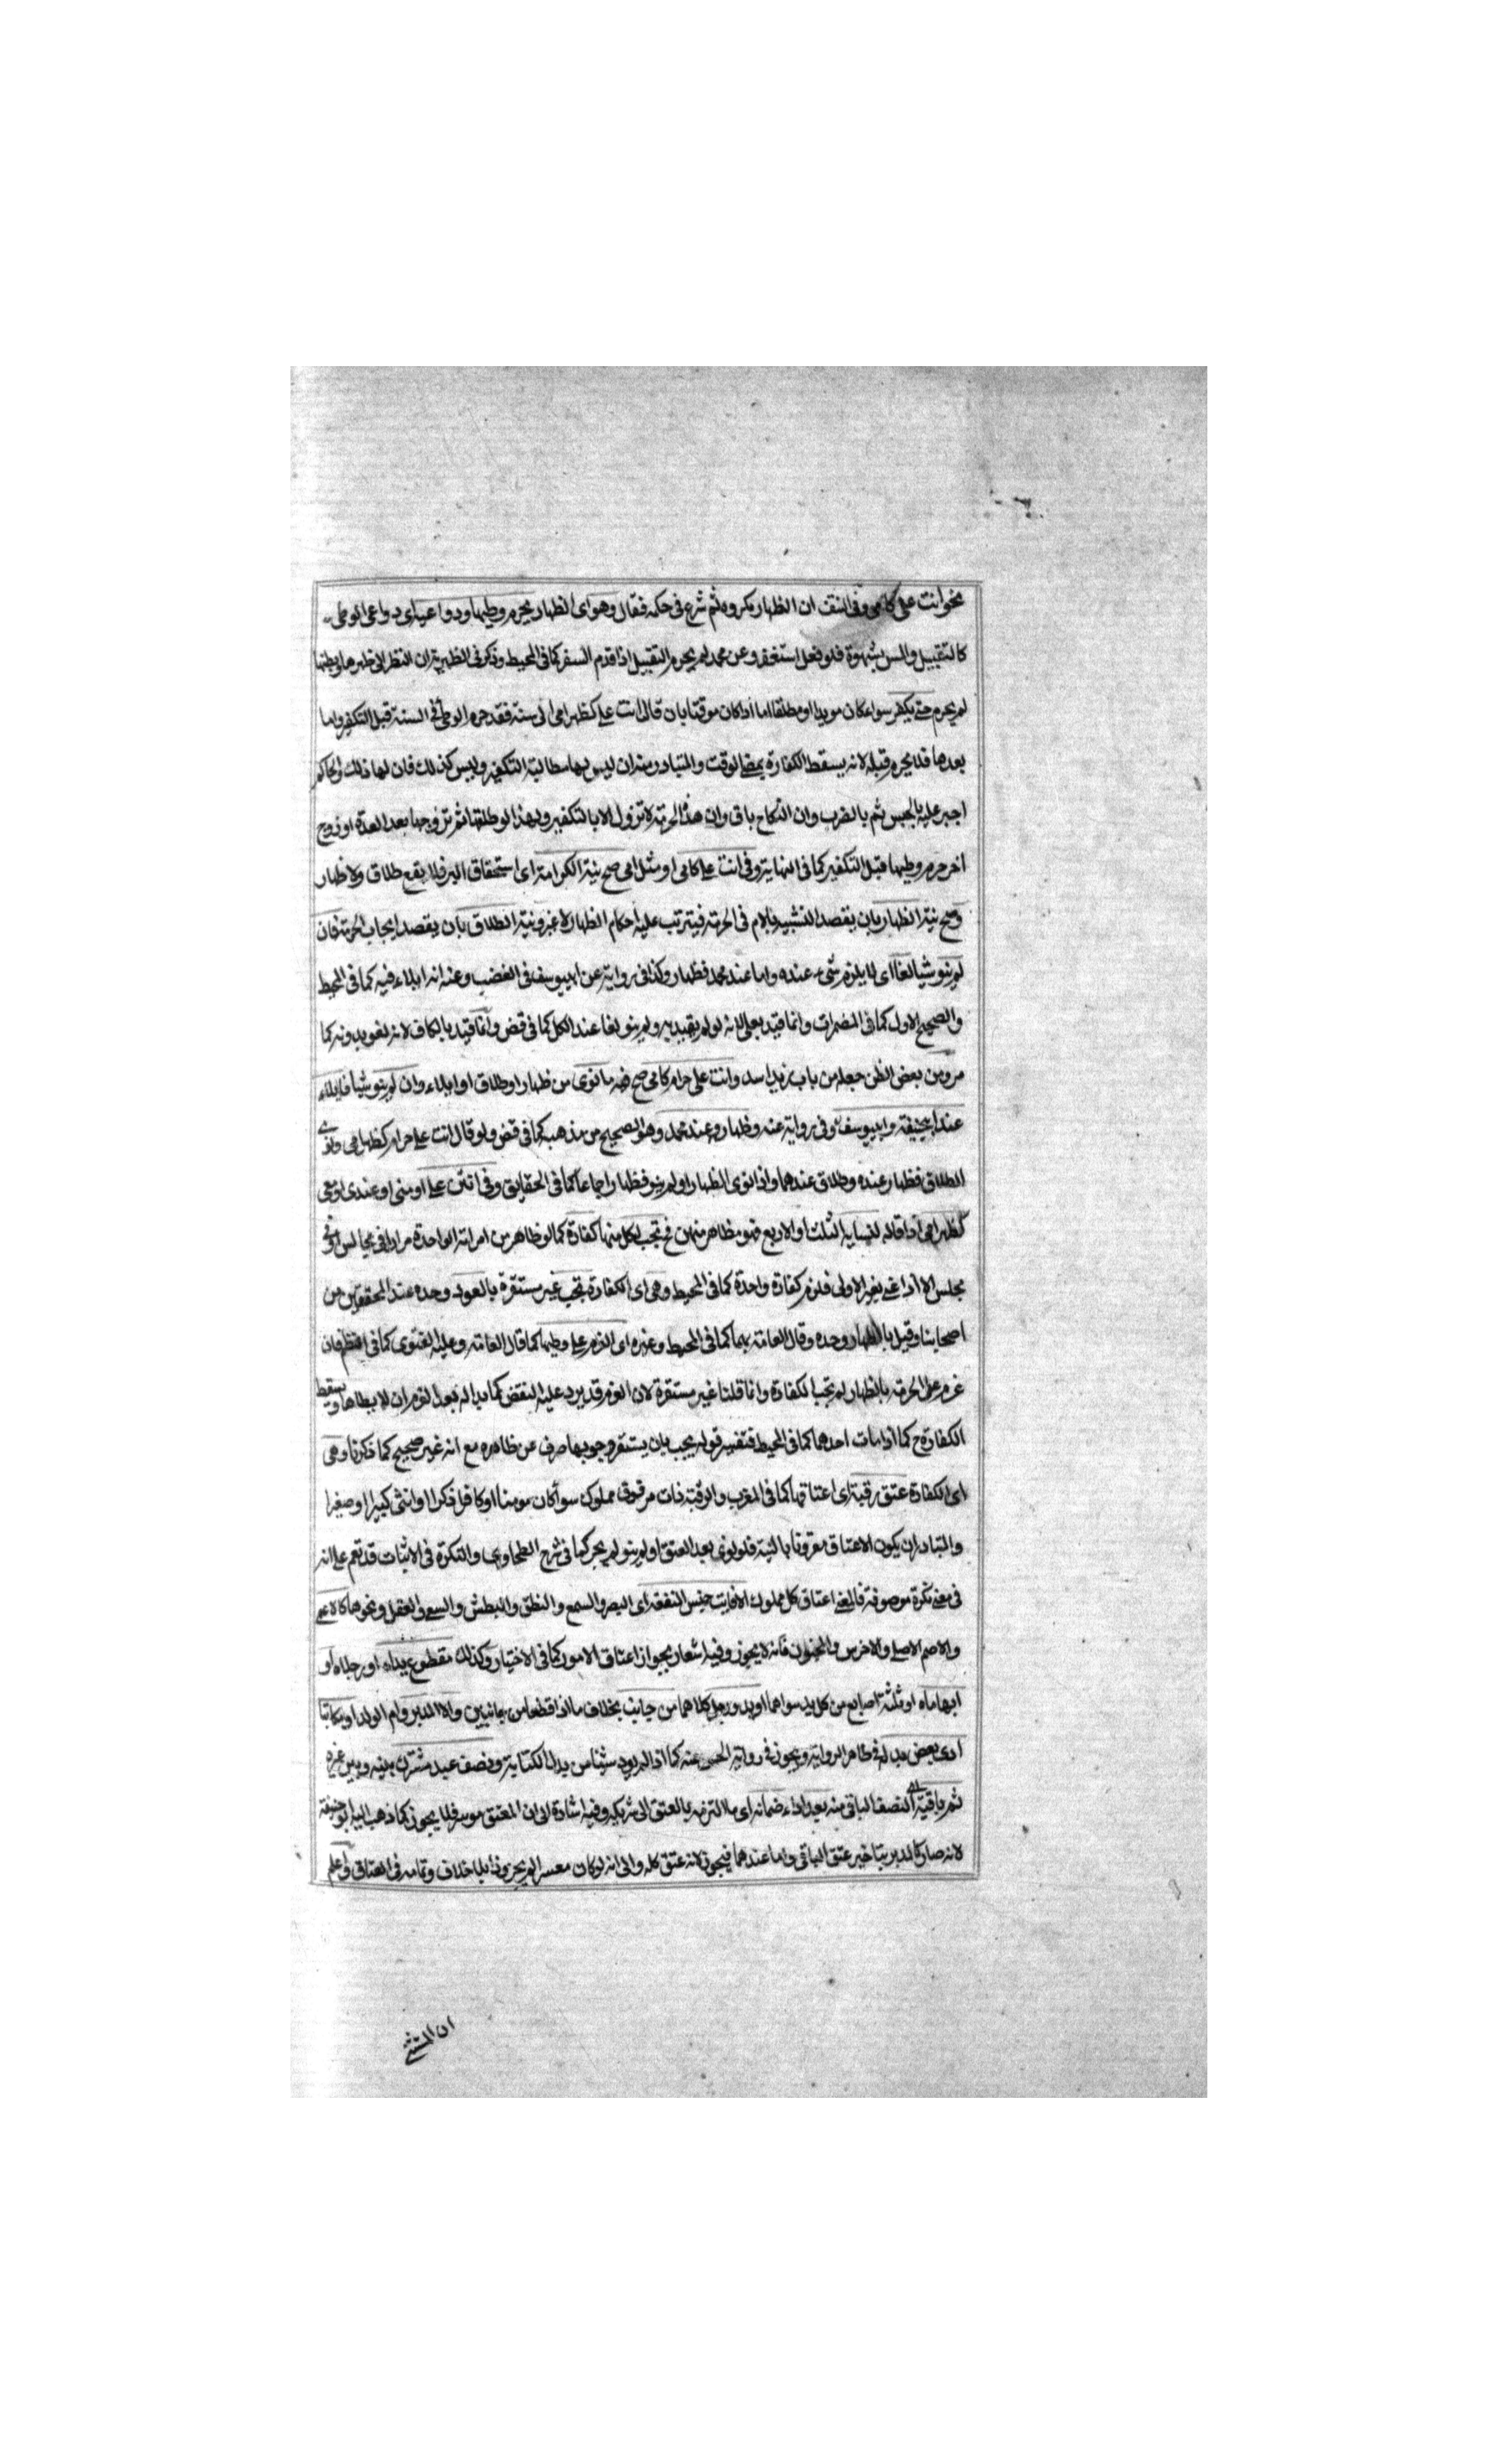 نحو انت على كامى وفى النتف ان الظهار مكروه ثم شرع فى حكمه فقال وهو اى الظهار يحرم وطيها ودواعيه اى دواعى الوطى
كالتقبيل والمس بشهوة فلو فعل استغفر وعن محمد لم يحرم التقبيل اذا قدم السفر كما فى المحيط وذكر فى الظهيرية ان النظر الى ظهرها وبطنها
لم يحرم حتى يكفر سواء كان موبدا او مطلقا اما اذا كان موقتا بان قال انت على كظهر امى الى سنة فقد حرم الوطى فى السنة قبل التكفير واما
بعدها فلا يحرم قبله لانه يسقط الكفارة بمضى الوقت والمتبادر منه ان ليس لها مطالبة التكفير وليس كذلك فان لها ذلك والحاكم
اجبر عليه بالحبس ثم بالضرب وان النكاح باق وان هذه الحرمة لا تزول الا بالتكفير ولهذا لو طلقها ثم تزوجها بعد العدة او زوج
اخر حرم وطيها قبل التكفير كما فى النهاية وفى انت على كامى او مثل امى صح نية الكرامة اى استحقاق البر فلا يقع طلاق ولا ظهار
وصح نية الظهار بان يقصد التشبيه بالام فى الحرمة فيترتب عليه احكام الظهار لا غير ونية الطلاق بان يقصد ايجاب الحرمة فان
لم ينو شيا لغا اى لا يلزم شىء عنده واما عند محمد فظهار وكذا فى رواية عن ابيوسف فى الغضب وعنه انه ايلاء فيه كما فى المحيط
والصحيح الاول كما فى المضمرات وانما قيد بعلى لانه لو لم يقيد به ولم ينو لغا عند الكل كما فى قض وانما قيد بالكاف لانه لغو بدونه كما
مر ومن بعض الظن جعله من باب زيد اسد وانت على حرام كامى صح فيه ما نوى من ظهار او طلاق او ايلاء وان لم ينو شيا فايلاء
عند ابيحنيفة وابيوسف وفى رواية عنه وظهار عند محمد وهو الصحيح من مذهبه كما فى قض ولو قال انت على حرام كظهر امى ونوى
الطلاق فظهار عنده وطلاق عندهما واذا نوى الظهار او لم ينو فظهار اجماعا كما فى الحقايق وفى انتن على او منى او عندى او معى
كظهر امى اذا قاله لنسايه الثلث او الاربع فهو مظاهر منهن فح تجب لكل منها كفارة كما لو ظاهر من امراته الواحدة مرارا فى مجالس او فى
مجلس الا اذا عنى بغير الاولى فلزم كفارة واحدة كما فى المحيط وهى اى الكفارة تجب غير مستقرة بالعود وحده عند المحققين من
اصحابنا وقيل بالظهار وحده وقال العامة بهما كما فى المحيط وغيره اى العزم على وطيها كما قال العامة وعليه الفتوى كما فى النظم فان
عزم على الحرمة بالظهار لم تجب الكفارة وانما قلنا غير مستقرة لان العزم قد يرد عليه النقض كما بدا له بعد العزم ان لا يطاها ويسقط
الكفارة ح كما اذا مات احدهما كما فى المحيط فتفسير قوله يجب بان يستقر وجوبها صرف عن ظاهره مع انه غير صحيح كما ذكرنا وهى
اى الكفارة عتق رقبة اى اعتاقها كما فى المغرب والرقبة ذات مرقوق مملوك سوا كان مومنا او كافرا ذكرا او انثى كبيرا او صغيرا
والمتبادر ان يكون الاعتاق مقرونا بالنية فلو نوى بعد العتق او لم ينو لم يجز كما فى شرح الطحاوى والنكرة فى الاثبات قد تعم على انه
فى معنى نكرة موصوفة فالمعنى اعتاق كل مملوك الا فايت جنس المنفعة اى البصر والسمع والنطق والبطش والسعى والعقل ونحوها كالاعمى
والاصم الاصلى والاخرس والمجنون فانه لا يجوز وفيه اشعار بجواز اعتاق الامور كما فى الاختيار وكذلك مقطوع يداه او رجلاه او
ابهاماه او ثلثة اصابع من كل يد سواهما او يد ورجل كلاهما من جانب بخلاف ما اذا قطعا من جانبين والا المدبر وام الولد او مكاتبا
ادى بعض بدله فى ظاهر الرواية ويجوز فى رواية الحسن عنه كما اذا لم يود شيئا من بدل الكتابة ونصف عبد مشترك بينه وبين غيره
ثم باقيه اى النصف الباقى منه بعد اداء ضمانه اى ما التزمه بالعتق الى شريكه وفيه اشارة الى ان المعتق موسر فلا يجوز كما ذهب اليه ابو حنيفة
لانه صار كالمدبر بتاخير عتق الباقى واما عندهما فيجوز لانه عتق كله والى انه لو كان معسرا لم يجز وذا بلا خلاف وتمامه فى العتاق واعلم
ان المستثنى